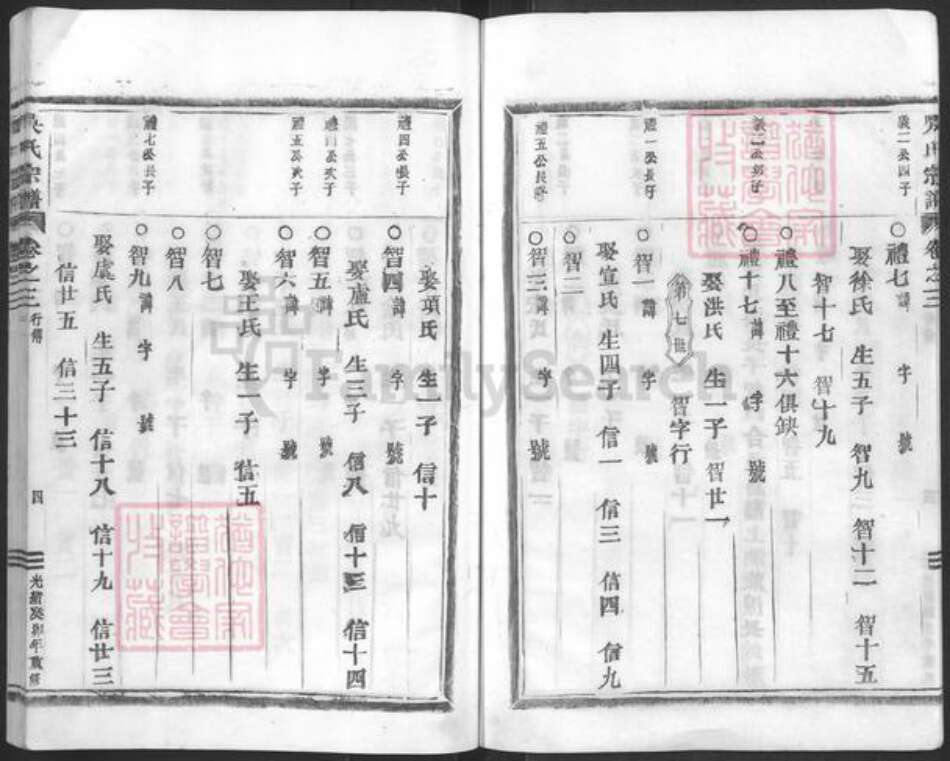 吳氏宗譜 卷之三
義二公四子
○禮七 諱 字 號
娶徐氏 生五子 智九 智十二 智十五
智十七 智十九
○禮八至禮十六俱缺
○禮十七 諱 字 號
娶洪氏 生一子 智廿一
第七世 智字行
禮一公長子
○智一 諱 字 號
娶宣氏 生四子 信一 信三 信四 信九
○智二
禮五公長子
○智三 諱 字 號
禮四公長子
○智四 諱 字 號
娶項氏 生一子 信十
禮四公次子
○智五 諱 字 號
娶盧氏 生三子 信八 信十三 信十四
禮五公次子
○智六 諱 字 號
娶王氏 生一子 信五
○智七
○智八
禮七公長子
○智九 諱 字 號
娶虞氏 生五子 信十八 信十九 信廿三
信廿五 信三十三
吳氏宗譜 卷之三 行傳 四 光緒癸卯年重修
FamilySearch